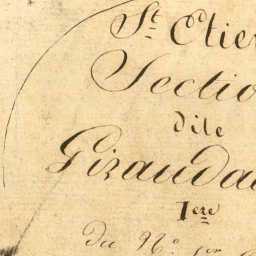 St Etien
Sectio
dite
Girauda
1ere
Du No 1er